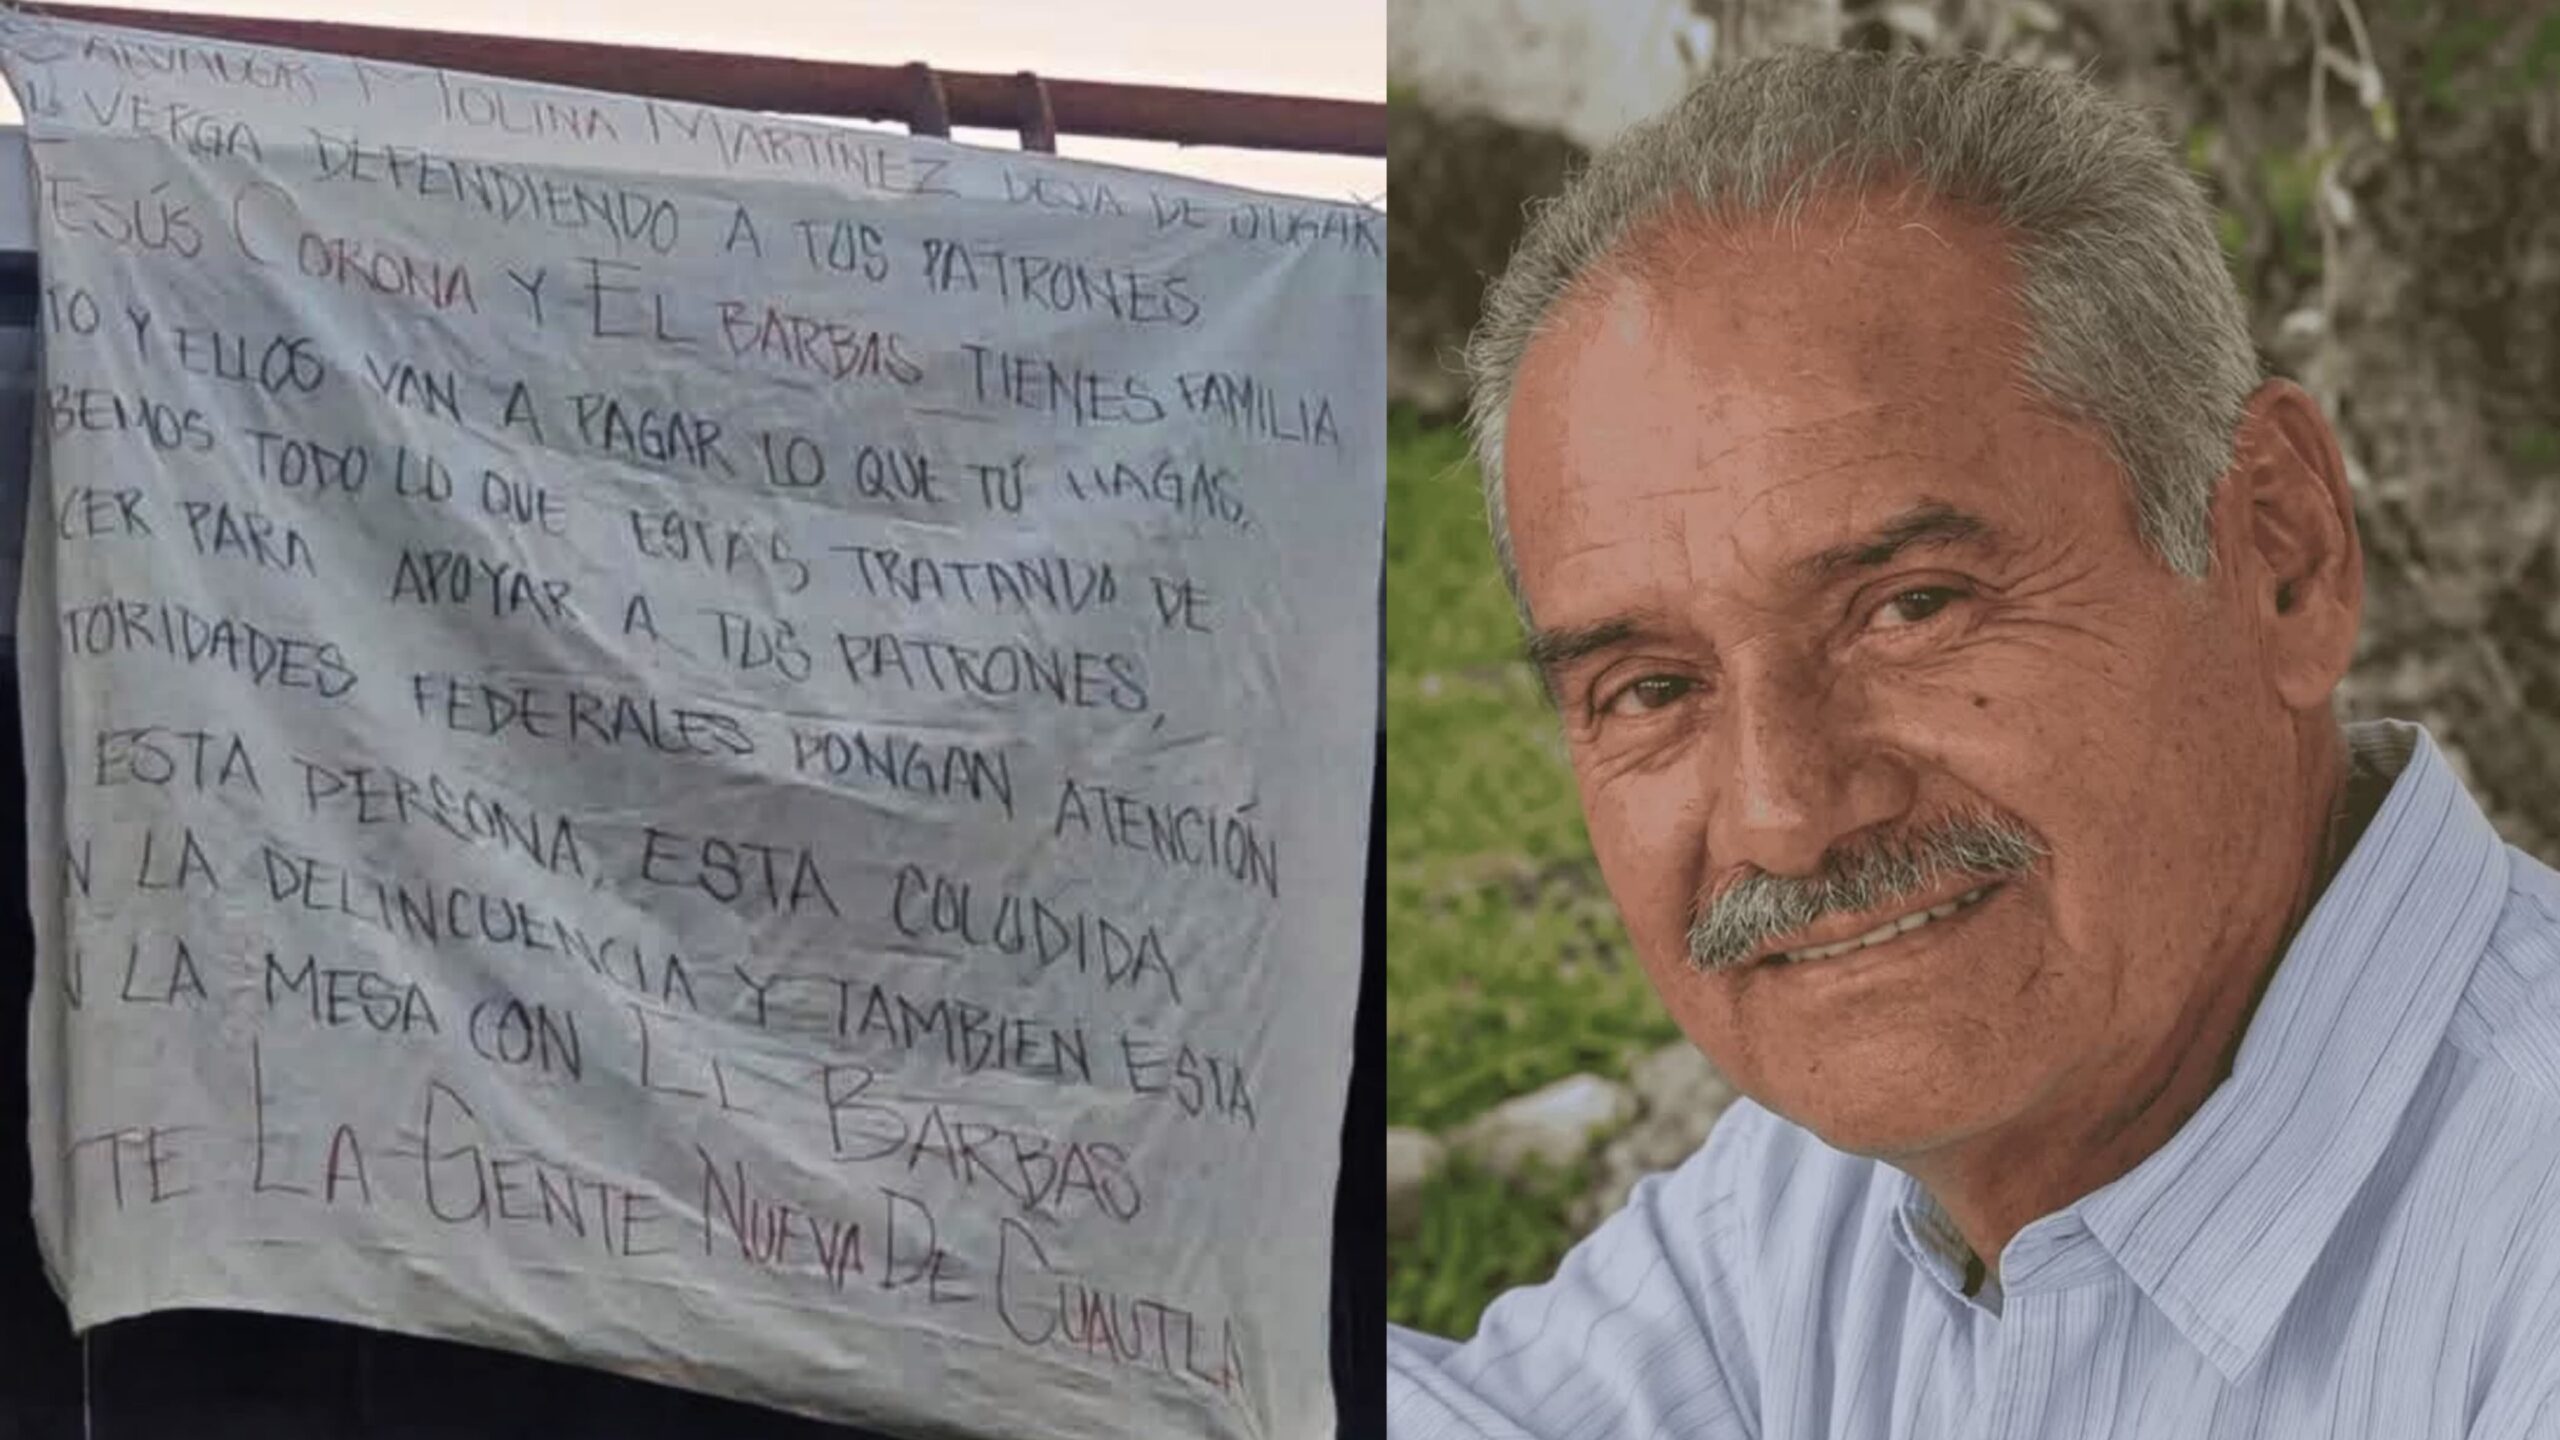 SALVADOR MOLINA MARTINEZ DEJA DE JUGAR
VERGA DEFENDIENDO A TUS PATRONES
ESÚS CORONA Y EL BARBAS TIENES FAMILIA
TO Y ELLOS VAN A PAGAR LO QUE TÚ HAGAS,
BEMOS TODO LO QUE ESTAS TRATANDO DE
CER PARA APOYAR A TUS PATRONES,
TORIDADES FEDERALES PONGAN ATENCIÓN
ESTA PERSONA, ESTA COLUDIDA
N LA DELINCUENCIA Y TAMBIEN ESTA
N LA MESA CON EL BARBAS
TE LA LA GENTE NUEVA DE CUAUTLA